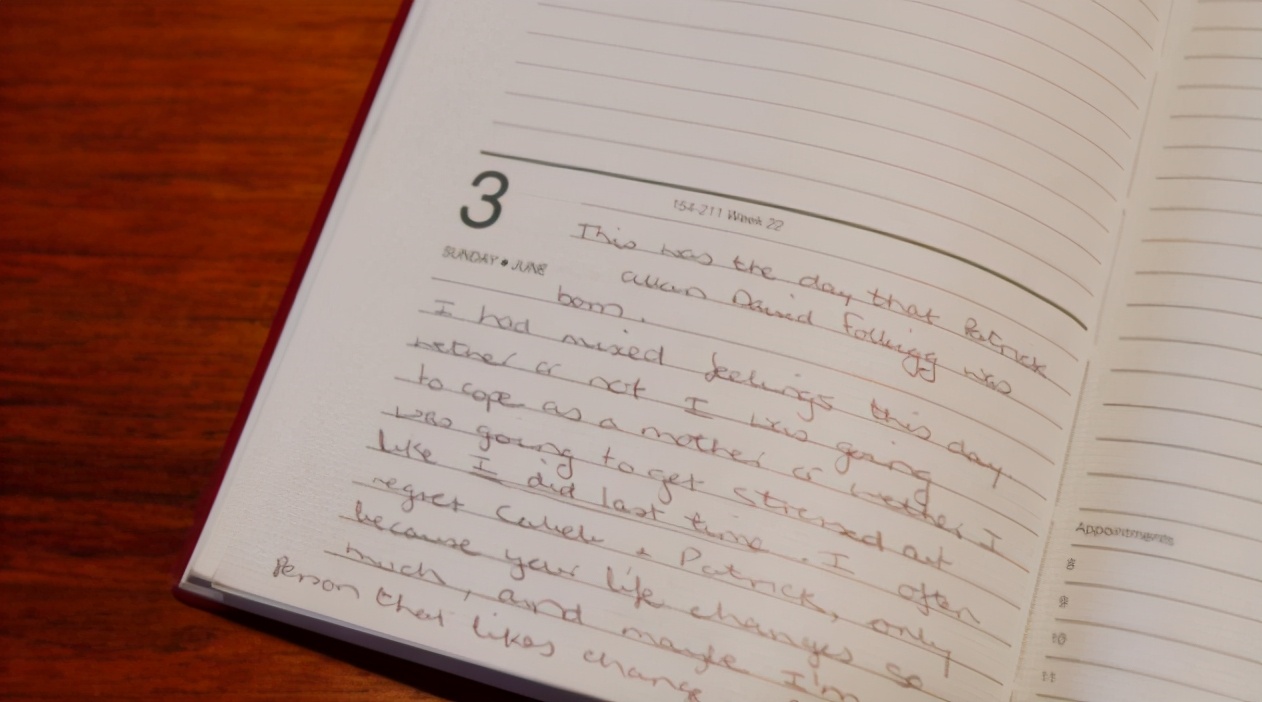 3
154-211 Week 22
SUNDAY • JUNE
This was the day that Patrick
Allan David Folbigg was
born.
I had mixed feelings this day.
wether or not I was going
to cope as a mother or wether I
was going to get stressed out
like I did last time. I often
regret Caleb + Patrick, only
because your life changes so
much, and maybe I'm
Person that likes change
Appointments
8
9
10
11